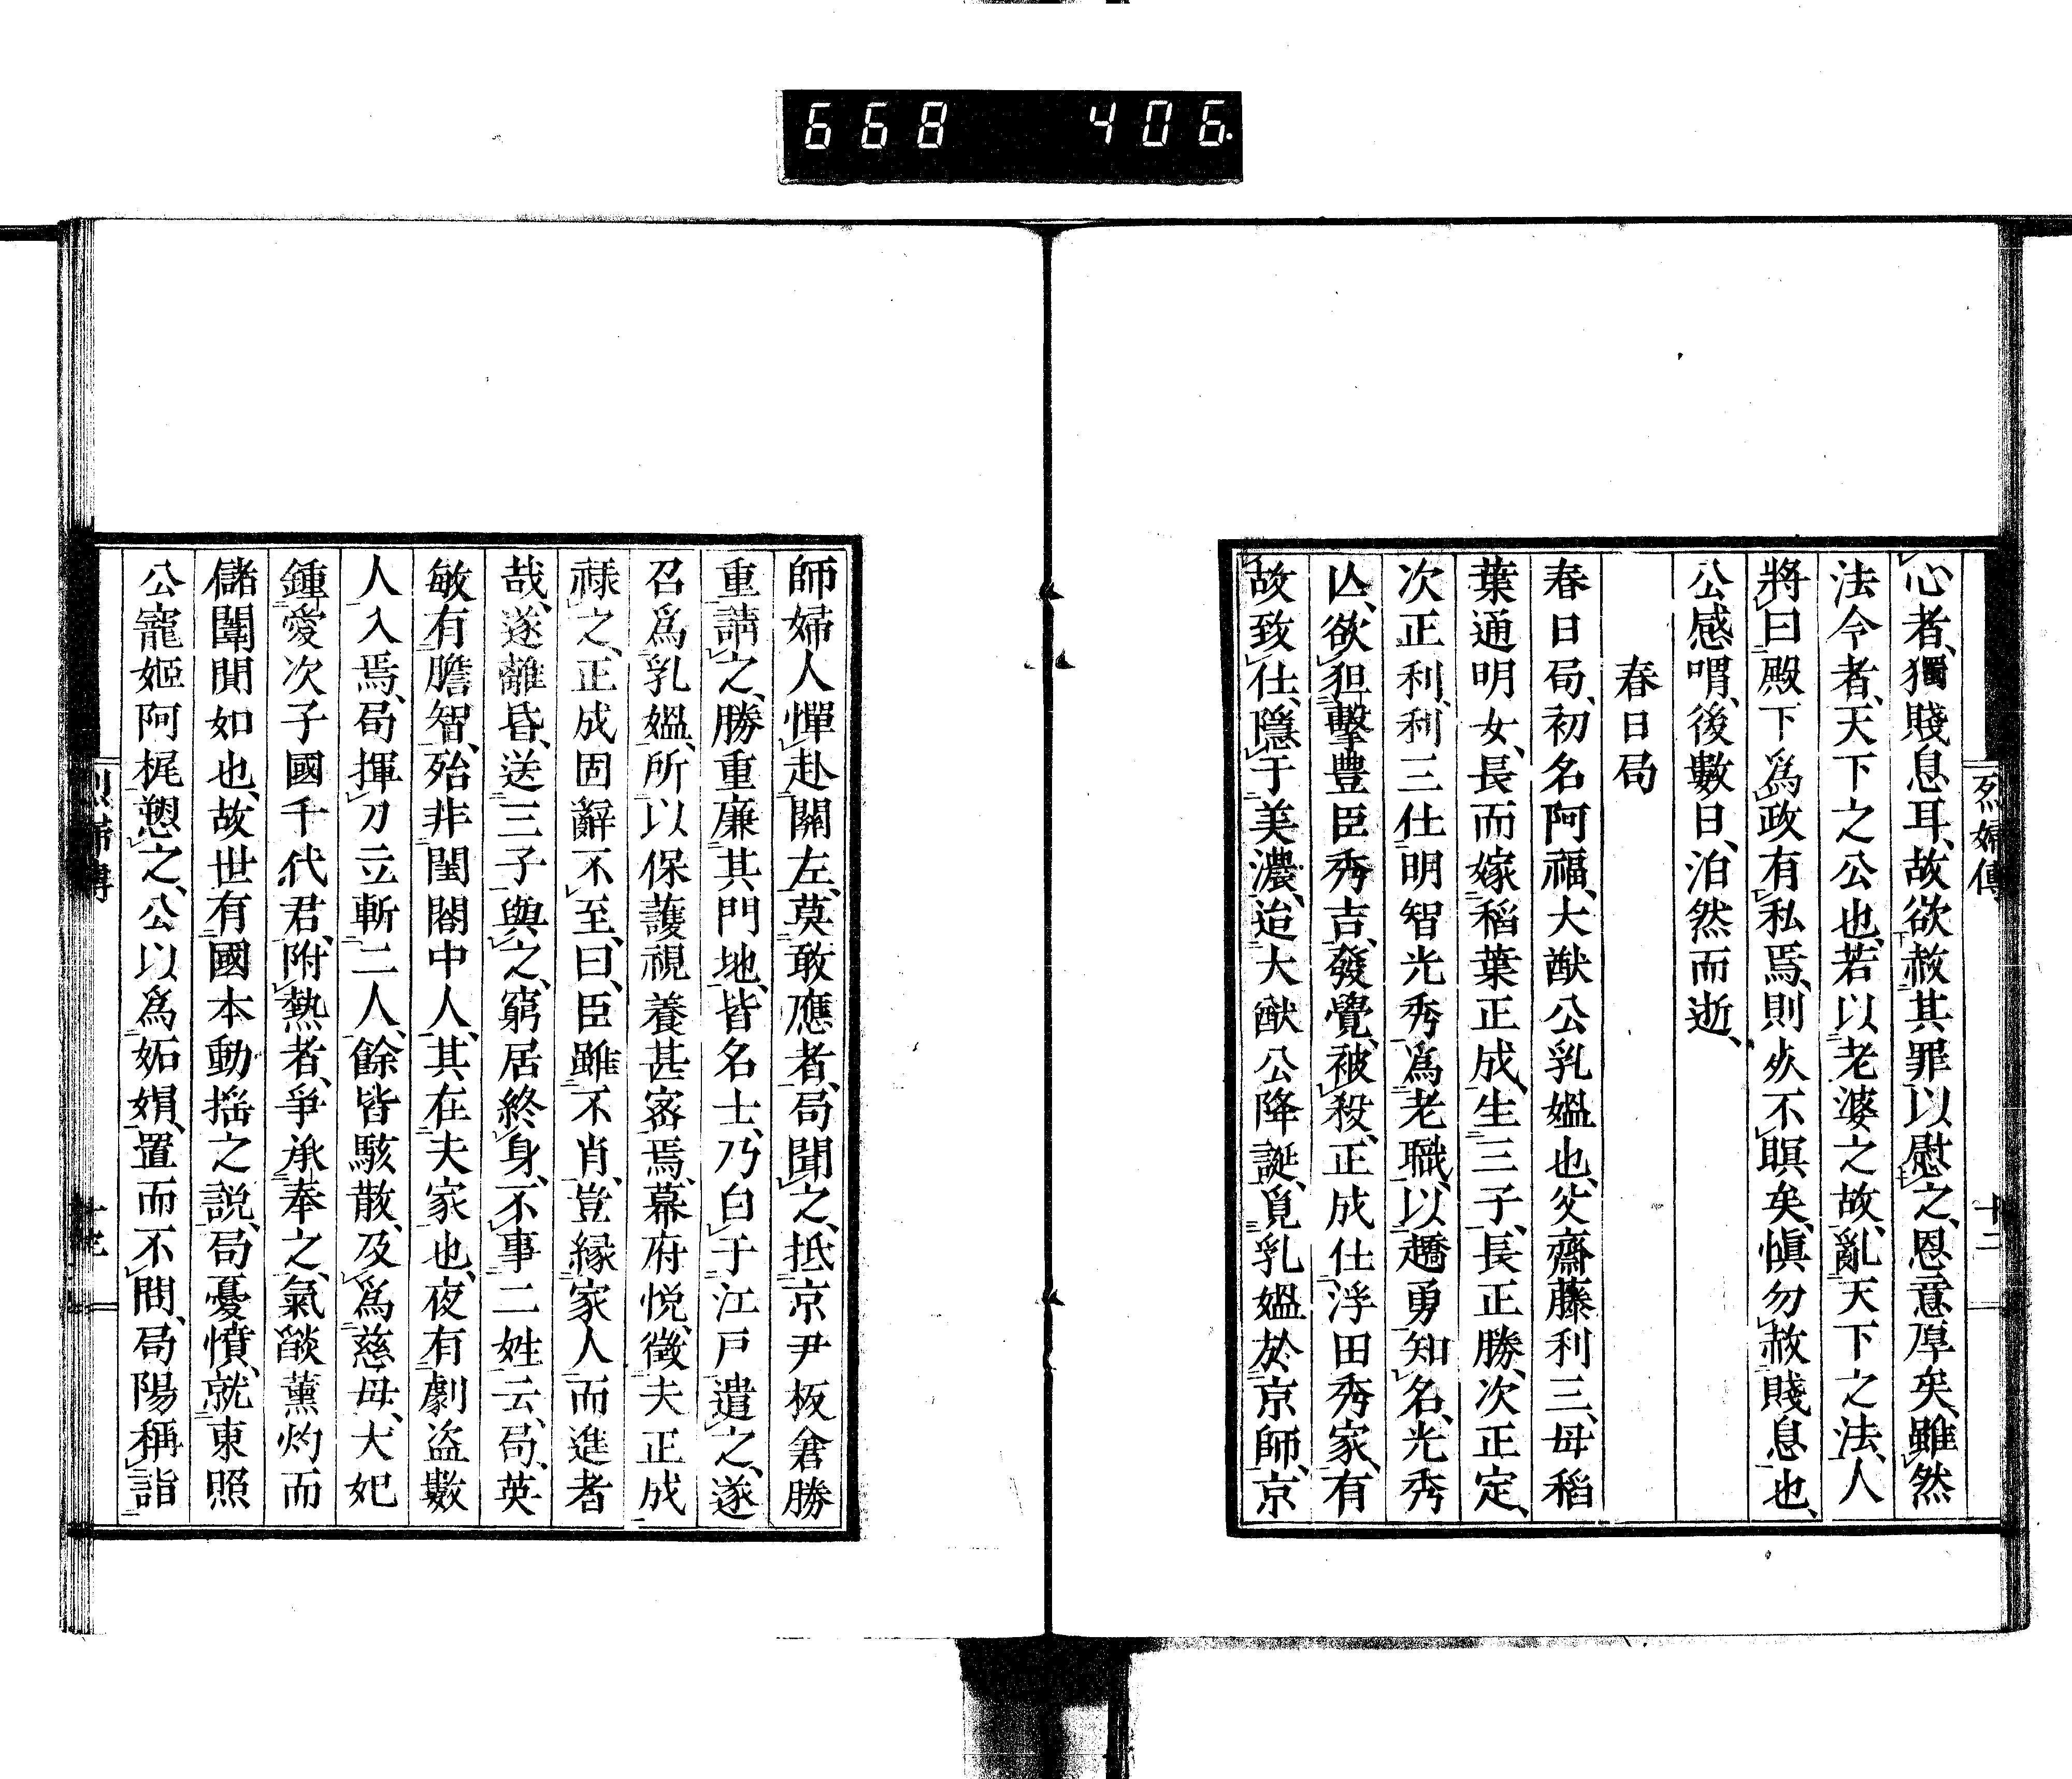 668 406
烈婦傳
十二
心者、獨賤息耳、故欲赦其罪以慰之、恩意厚矣、雖然
法令者、天下之公也、若以老婆之故、亂天下之法、人
將曰殿下爲政有私焉、則死不瞑矣、愼勿赦賤息也、
公感喟、後數日、泊然而逝、
春日局
春日局、初名阿福、大猷公乳媼也、父齋藤利三、母稻
葉通明女、長而嫁稻葉正成、生三子、長正勝、次正定、
次正利、利三仕明智光秀爲老職、以趫勇知名、光秀
亾、欲狙擊豊臣秀吉、發覺、被殺、正成仕浮田秀家、有
故致仕、隱于美濃、迨大猷公降誕、覓乳媼於京師、京
師婦人憚赴關左、莫敢應者、局聞之、抵京尹板倉勝
重請之、勝重廉其門地、皆名士、乃白于江戸遣之、遂
召爲乳媼、所以保護視養甚宻焉、幕府悦、徵夫正成
祿之、正成固辭不至、曰、臣雖不肖、豈緣家人而進者
哉、遂離昏、送三子與之、窮居終身、不事二姓云、局、英
敏有膽智、殆非閨閤中人、其在夫家也、夜有劇盗數
人入焉、局揮刀立斬二人、餘皆駭散、及爲慈母、大妃
鍾愛次子國千代君、附熱者、爭承奉之、氣燄薰灼而
儲闈閴如也、故世有國本動揺之説、局憂憤、就東照
公寵姬阿梶愬之、公以爲妬媢、置而不問、局陽稱詣
烈婦傳
十三